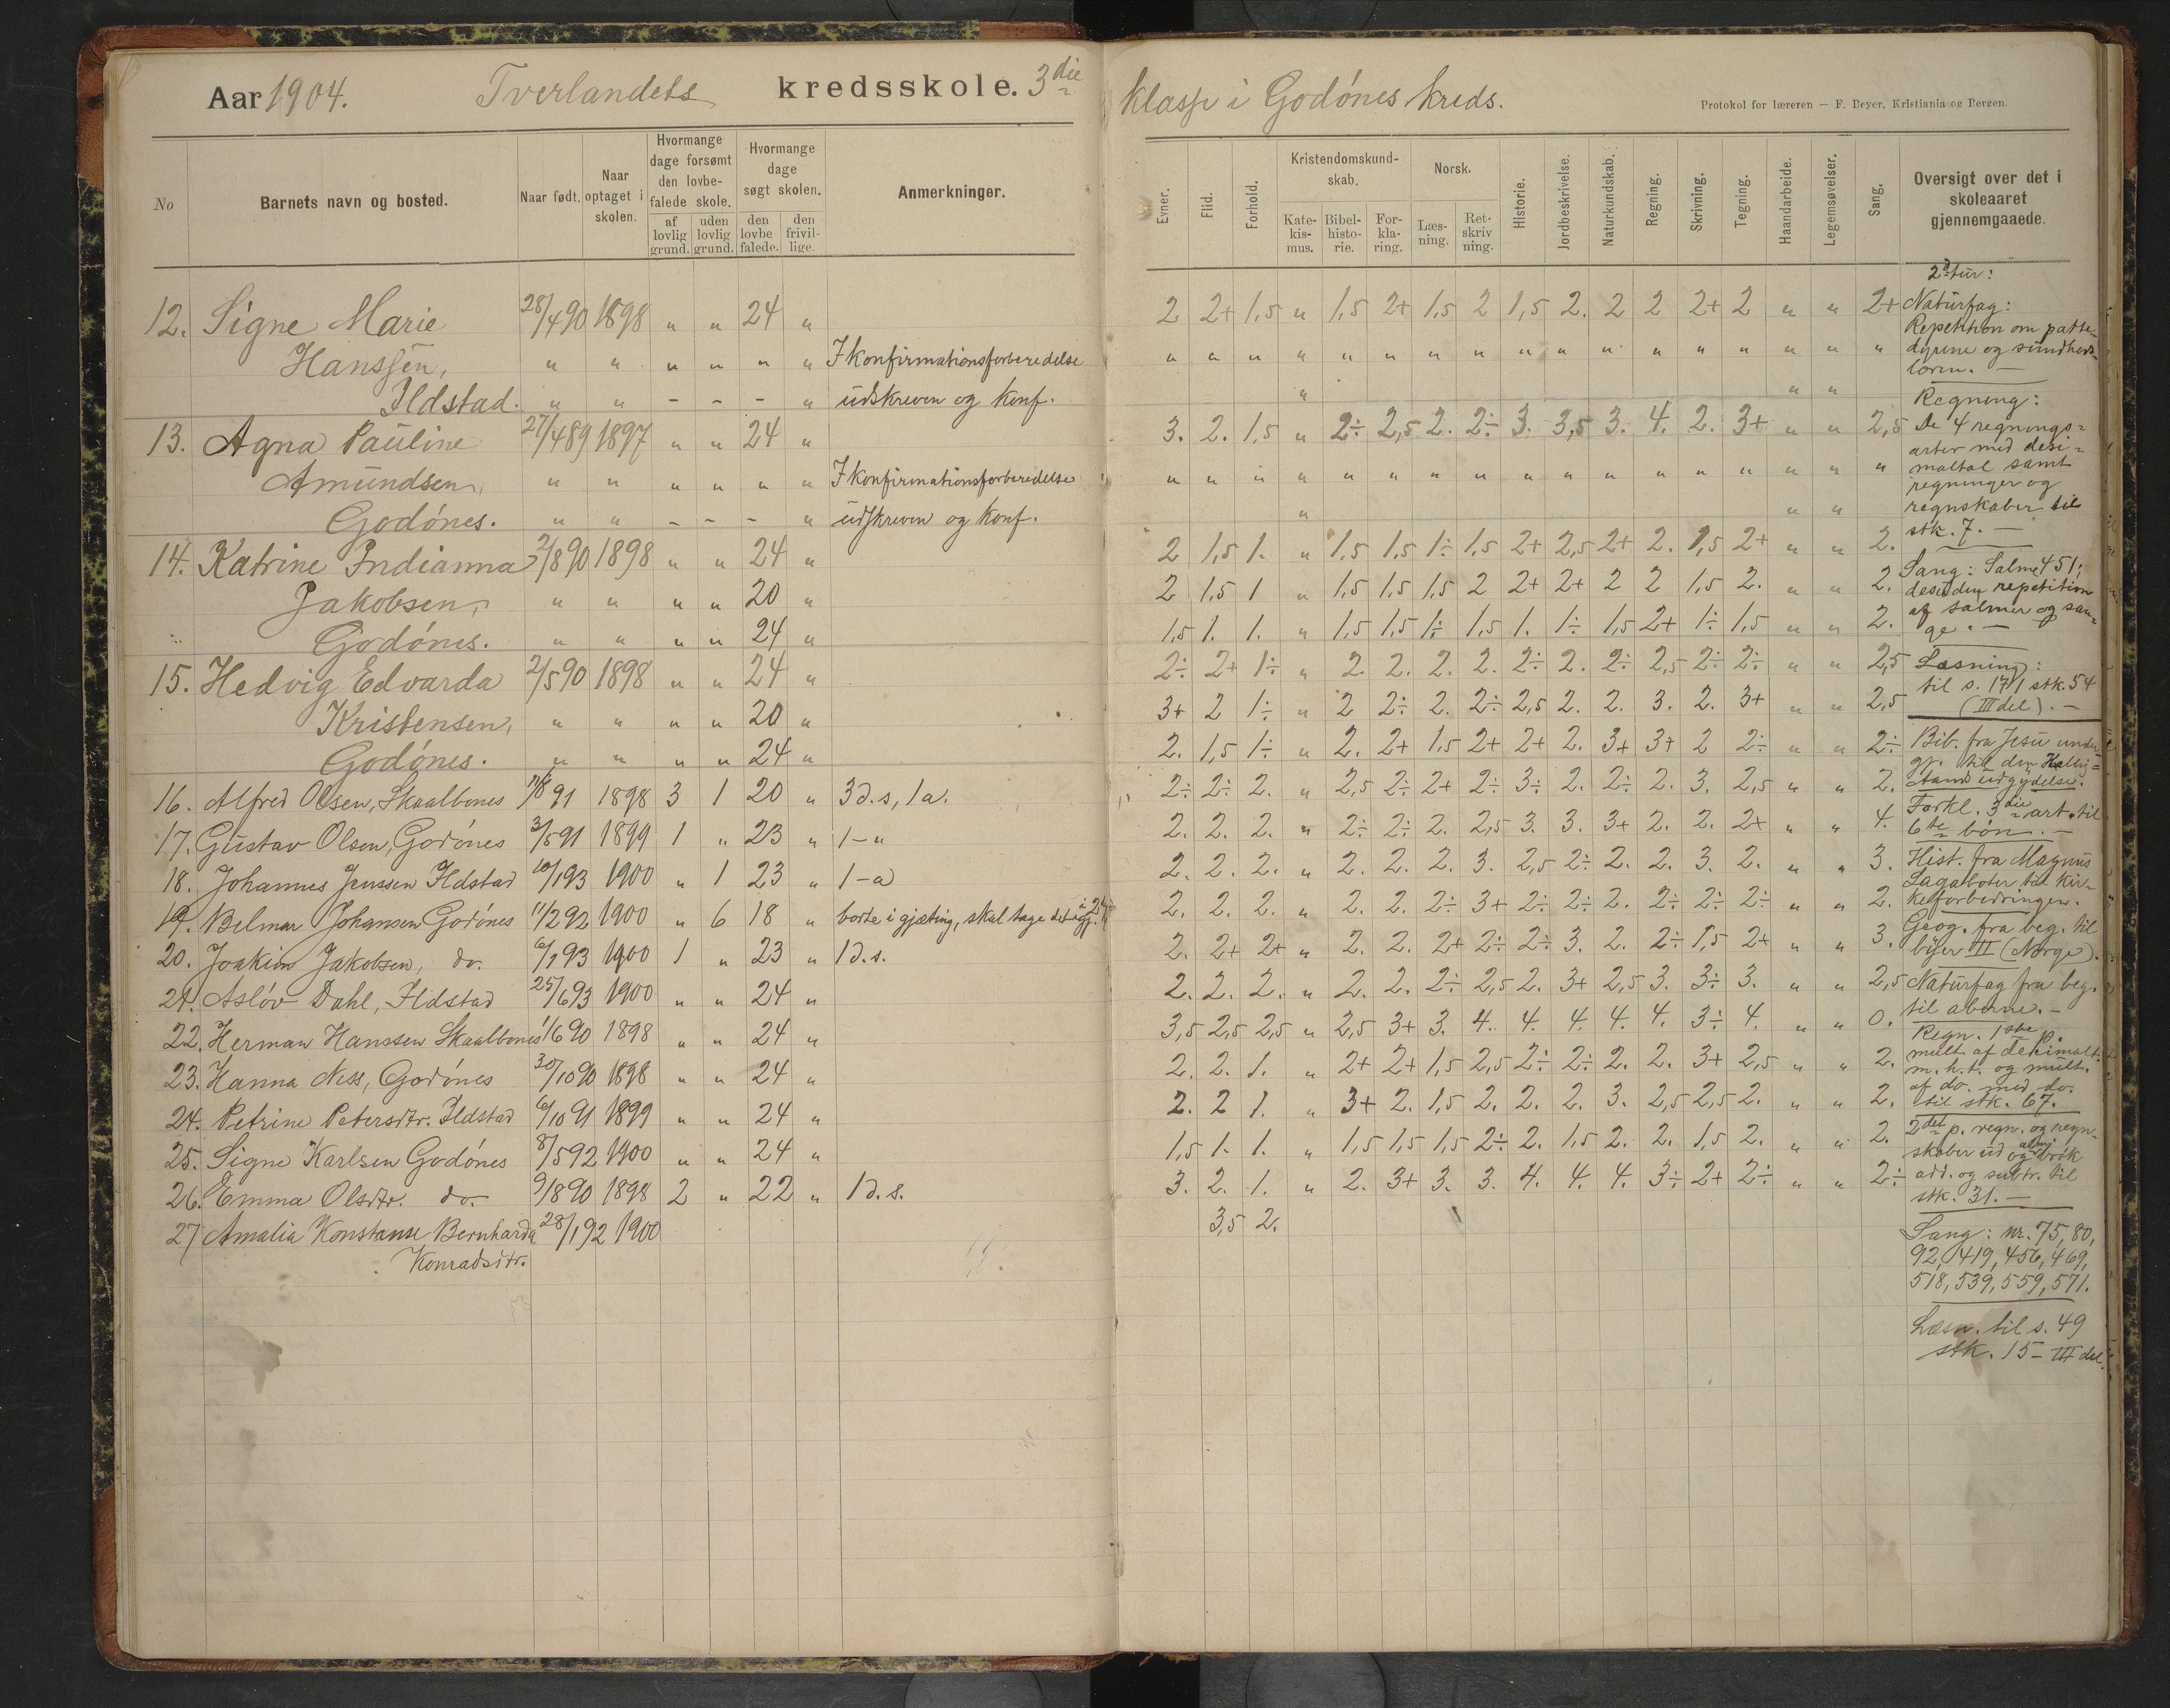 Aar 1904. Tverlandets kredsskole. 3die klasse i Godónes kreds.
Protokol for læreren — F. Beyer, Kristiania og Bergen.
No
Barnets navn og bosted.
Naar født.
Naar optaget i skolen.
Hvormange dage forsømt den lovbefalede skole.
af lovlig grund.
uden lovlig grund.
Hvormange dage søgt skolen.
den lovbefalede.
den frivillige.
Anmerkninger.
Evner.
Flid.
Forhold.
Kristendomskundskab.
Katekismus.
Bibelhistorie.
Forklaring.
Norsk.
Læsning.
Retskrivning.
Historie.
Jordbeskrivelse.
Naturkundskab.
Regning.
Skrivning.
Tegning.
Haandarbeide.
Legemsøvelser.
Sang.
Oversigt over det i skoleaaret gjennemgaaede.
12. Signe Marie 28/4 90 1898 " " 24 " 2 2+ 1,5 " 1,5 2+ 1,5 2 1,5 2. 2 2 2+ 2 " " 2+
Hanssen, " " " " " " I konfirmationsforberedelse " " " " " " " " " " " " " " " " "
Ildstad. " " - - - " udskreven og konf. " " "
13. Agna Pauline 27/4 89 1897 " " 24 " 3. 2. 1,5 " 2÷ 2,5 2. 2÷ 3. 3,5 3. 4. 2. 3+ " " 2,5
Amundsen, " " " " " " I konfirmationsforberedelse " " " " " " " " " " " " " " " " "
Godónes. " " - - - " udskreven og konf. " " "
14. Katrine Indianna 2/8 90 1898 " " 24 " 2 1,5 1. " 1,5 1,5 1÷ 1,5 2+ 2,5 2+ 2. 1,5 2+ " " 2.
Jakobsen, " " " " 20 " 2 1,5 1 " 1,5 1,5 1,5 2 2+ 2+ 2 2 1,5 2. " " 2.
Godónes. " " " " 24 " 1,5 1. 1. " 1,5 1,5 1÷ 1,5 1. 1÷ 1,5 2+ 1÷ 1,5 " " 2.
15. Hedvig Edvarda 2/5 90 1898 " " 24 " 2÷ 2+ 1÷ " 2 2. 2. 2. 2÷ 2. 2÷ 2,5 2÷ 2÷ " " 2,5
Kristensen, " " " " 20 " 3+ 2 1÷ " 2 2÷ 2. 2÷ 2,5 2. 2. 3. 2. 3+ " " 2,5
Godónes. " " " " 24 " 2. 1,5 1÷ " 2. 2+ 1,5 2+ 2+ 2. 3+ 3+ 2 2÷ " " 2÷
16. Alfred Olsen, Skaalbones 11/8 91 1898 3 1 20 " 3 d. s, 1 a. 2÷ 2÷ 2. " 2,5 2÷ 2+ 2÷ 3÷ 2. 2÷ 2. 3. 2,5 " " 2.
17. Gustav Olsen, Godónes 3/5 91 1899 1 " 23 " 1 - " 2. 2. 2. " 2÷ 2÷ 2. 2,5 3. 3. 3+ 2. 2. 2+ " " 4.
18. Johannes Jenssen Ildstad 10/1 93 1900 " 1 23 " 1 - a 2. 2. 2. " 2. 2. 2. 3. 2,5 2÷ 2. 2. 3. 2. " " 3.
19. Belmar Johansen Godónes 11/2 92 1900 " 6 18 " borte i gjæting, skal tage det 2. 2. 2. " 2. 2. 2÷ 3+ 2÷ 2÷ 2. 2÷ 2÷ 2÷ " " 2.
20. Joakim Jakobsen, do. 6/1 93 1900 1 " 23 " 1 d. s. 2. 2+ 2+ " 2. 2. 2+ 2÷ 2÷ 3. 2. 2÷ 1,5 2+ " " 3.
21. Asløv Dahl, Ildstad 25/6 93 1900 " " 24 " 2. 2. 2. " 2. 2. 2÷ 2,5 2. 3+ 2,5 3. 3÷ 3. " " 2,5
22. Herman Hanssen Skaalbones 1/6 90 1898 " " 24 " 3,5 2,5 2,5 " 2,5 3+ 3. 4. 4. 4. 4. 4. 3÷ 4. " " 0.
23. Hanna Ness, Godónes 30/10 90 1898 " " 24 " 2. 2. 1. " 2+ 2+ 1,5 2,5 2÷ 2÷ 2. 2. 3+ 2,5 " " 2.
24. Petrine Petersdtr. Ildstad 6/10 91 1899 " " 24 " 2. 2 1. " 3+ 2. 1,5 2. 2. 2. 3. 2,5 2,5 2. " " 2.
25. Signe Karlsen Godónes 8/5 92 1900 " " 24 " 1,5 1. 1. " 1,5 1,5 1,5 2÷ 2. 1,5 2. 2. 1,5 2. " " 2.
26. Emma Olsdtr. do. 9/8 90 1898 2 " 22 " 1 d. s. 3. 2. 1. " 2. 3+ 3. 3. 4. 4. 4. 3÷ 2+ 2÷ " " 2÷
27 Amalia Konstanse Bernharda 28/1 92 1900 3,5 2.
Konradsdtr.
2d tur:
Naturfag:
Repetition om patte-
dyrene og sundheds-
læren. —
Regning:
De 4 regnings-
arter med desi-
maltal samt
regninger og
regnskaber til
stk. 7. —
Sang: Salme 451;
desuden repetition
af salmer og san-
ge. —
Læsning:
til s. 171 stk. 54
(III del). —
Bib. fra Jesu under-
gj. til den Hellig-
aands udgydelse.
Forkl. 3die art. til
6te bøn. —
Hist. fra Magnus
Lagabøter til kir-
keforbedringen.
Geog. fra beg. til
byer III (Norge).
Naturfag fra beg.
til aberne. —
Regn. 1ste p.
mult. af decimalt.
m. h. t. og mult.
af do. med do.
til stk. 67.
2det p. regn. og regn-
skaber ud og alm. brøk
add. og subtr. til
stk. 31. —
Sang: nr. 75, 80,
92, 419, 456, 469,
518, 539, 559, 571.
Læsn. til s. 49
stk. 15 - III del.